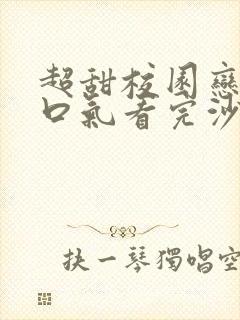 超甜校园戀
口氣看完沙
抉一琴獨唱空